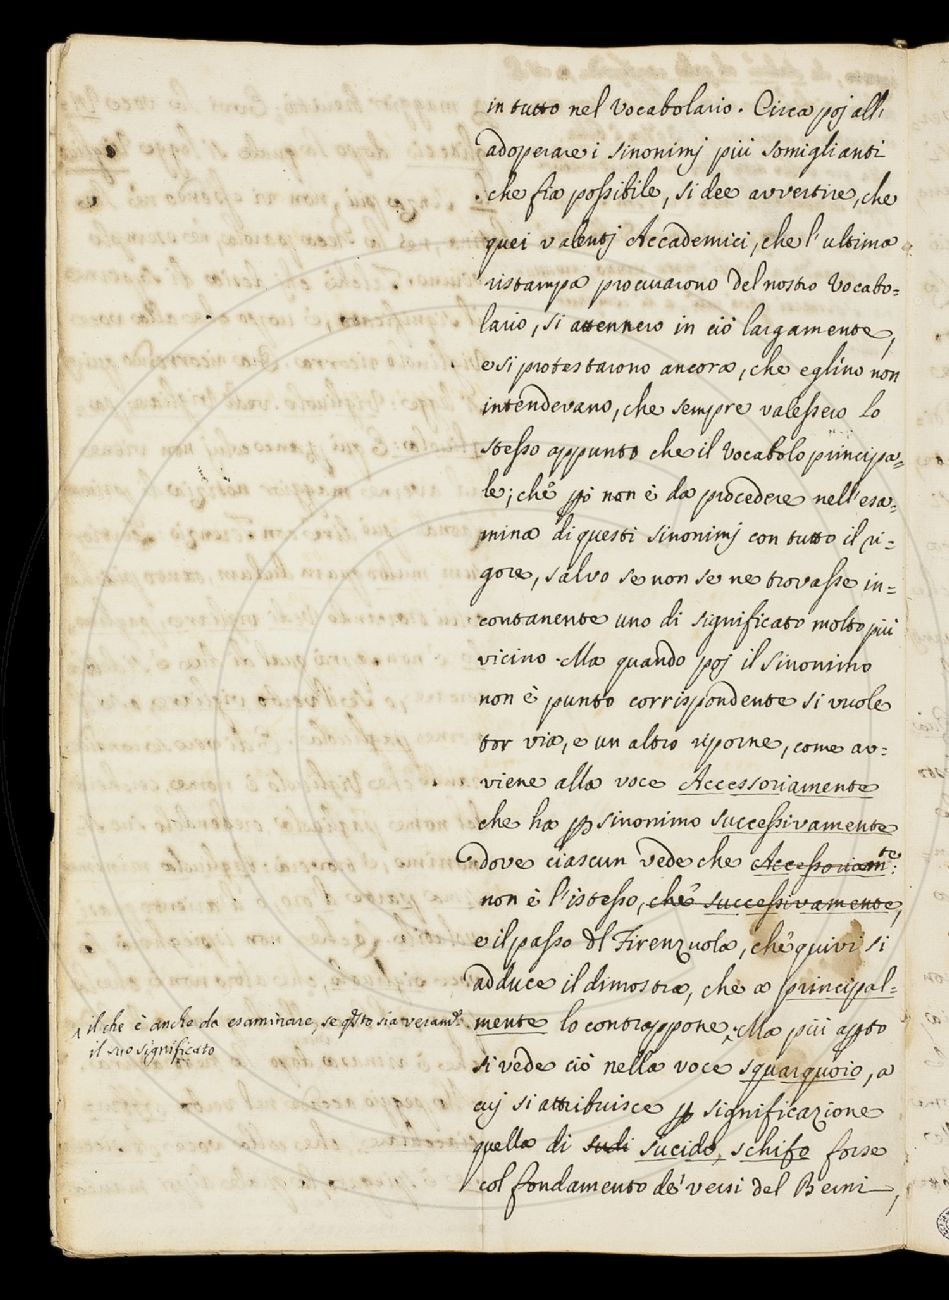 in tutto nel Vocabolario. Circa poj all'
adoperare i sinonimj più somiglianti
che fia possibile, si dee avvertire, che
quei valentj Accademici, che l'ultima
ristampa procurarono del nostro Vocabo=
lario, si attennero in ciò largamente,
e si protestarono ancora, che eglino non
intendevano, che sempre valessero lo
stesso appunto che il Vocabolo principa=
le; chè però non è da procedere nell'esa=
mina di questi sinonimj con tutto il ri=
gore, salvo se non se ne trovasse in=
contanente uno di significato molto più
vicino. Ma quando poj il sinonimo
non è punto corrispondente si vuole
tor via, e un altro riporne, come av=
viene alla voce Accessoriamente
che ha p sinonimo successivamente
dove ciascun vede che Accessoriam:te
non è l'istesso, chè successivamente,
e il passo del Firenzuola, chè quivi si
adduce il dimostra, che a principal=
mente lo contrappone. Ma più aptto
si vede ciò nella voce squarquoio, a
cuj si attribuisce p significazione
quella di sudi sucido, schifo forse
col fondamento de' versi del Berni,
il che è anche da esaminare, se qsto sia veramte
il suo significato